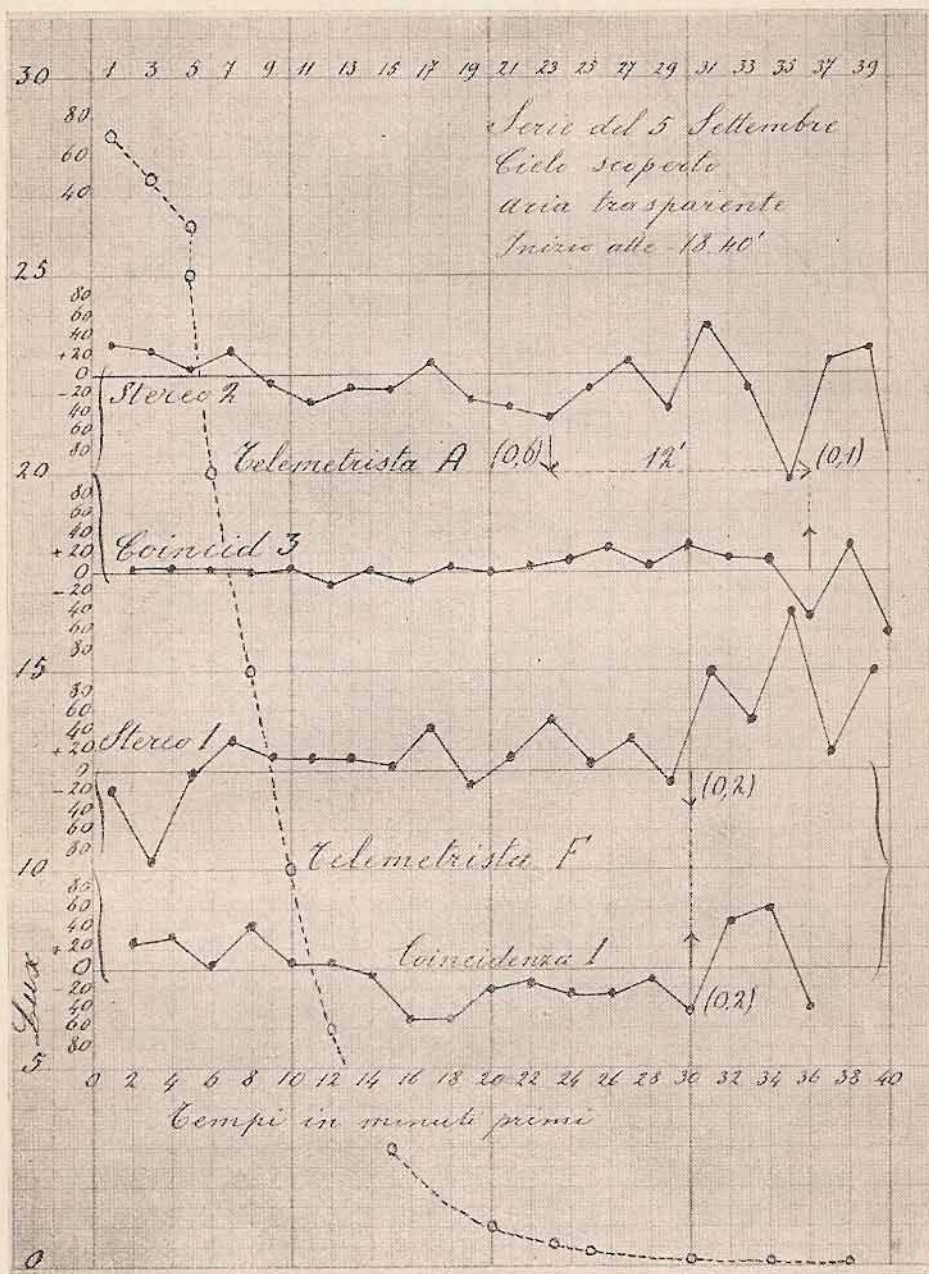 30 1 3 5 7 9 11 13 15 17 19 21 23 25 27 29 31 33 35 37 39
80
60
40
Serie del 5 Settembre
Cielo scoperto
Aria trasparente
Inizio alle - 18.40'
25
80
60
40
+20
0
-20
40
60
80
Stereo 2
20
Telemetrista A (0,6) 12' (0,1)
80
60
40
+20
0
-20
40
60
80
Coincid 3
15
80
60
40
+20
0
-20
40
60
80
Stereo 1
(0,2)
10
Telemetrista F
80
60
40
+20
0
-20
40
60
80
Coincidenza 1
(0,2)
Lux
5
0 2 4 6 8 10 12 14 16 18 20 22 24 26 28 30 32 34 36 38 40
Tempi in minuti primi
0